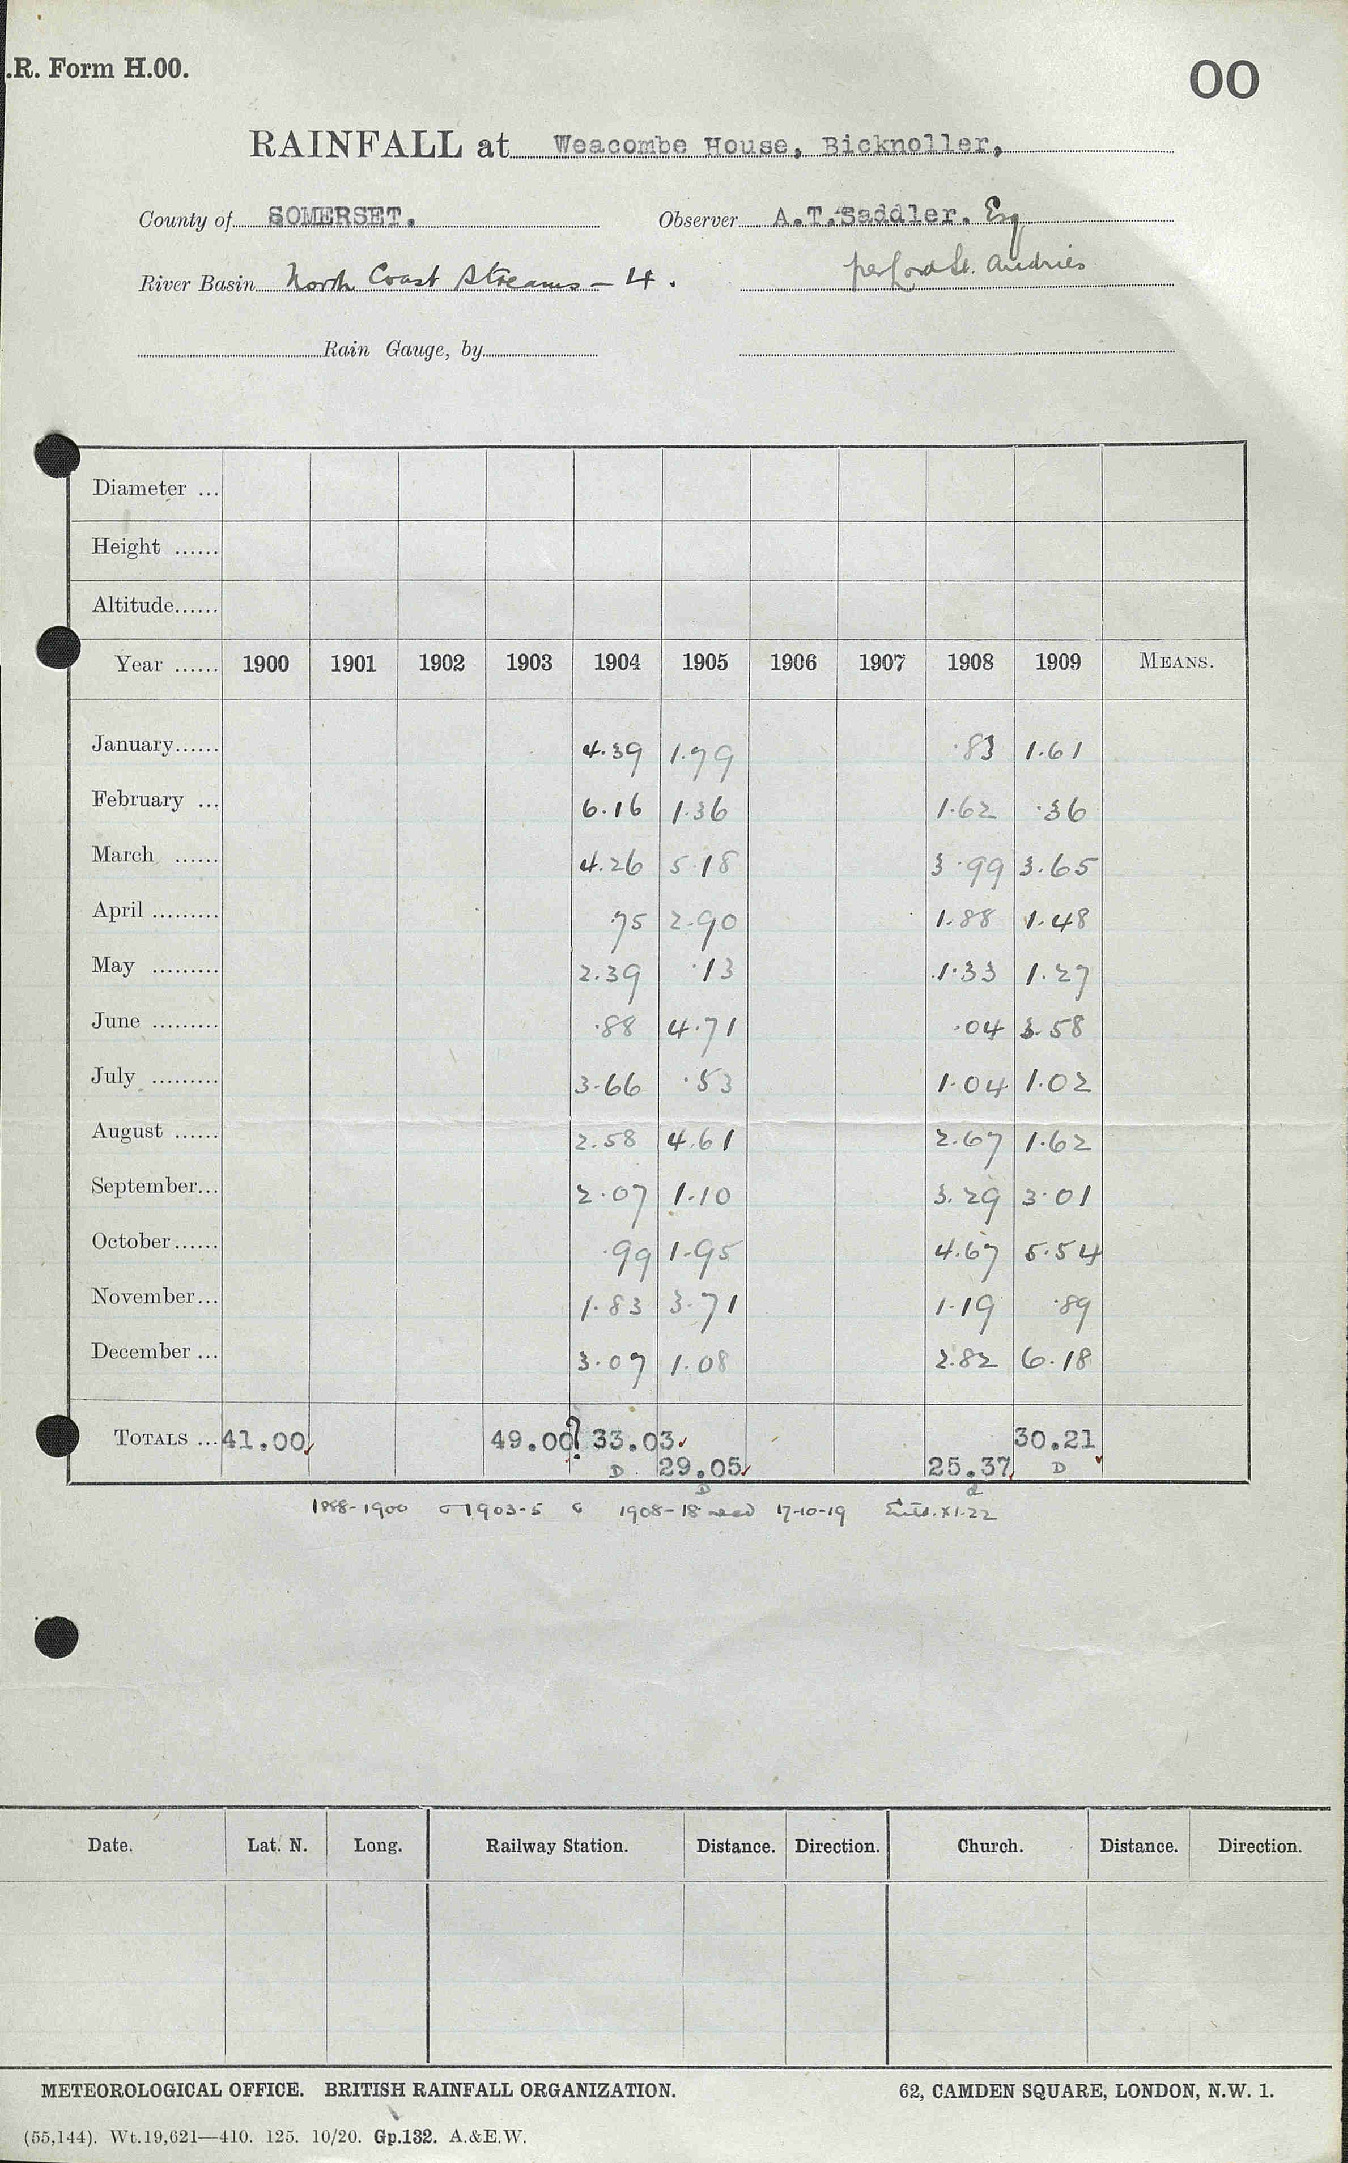 .R. Form H.00.
00
RAINFALL at Weacombe House, Bicknoller,
County of SOMERSET. Observer A.T.Saddler. Esq
River Basin North Coast Streams – 4. per Lord St. Audries
Rain Gauge, by
Diameter ...
Height ......
Altitude......
Year ...... 1900 1901 1902 1903 1904 1905 1906 1907 1908 1909 MEANS.
January...... 4.39 1.79 .83 1.61
February ... 6.16 1.36 1.62 .36
March ...... 4.26 5.18 3.99 3.65
April ......... .75 2.90 1.88 1.48
May ......... 2.39 .13 1.33 1.27
June ......... .88 4.71 .04 3.58
July ......... 3.66 .53 1.04 1.02
August ...... 2.58 4.61 2.67 1.62
September... 2.07 1.10 3.29 3.01
October...... .99 1.95 4.67 5.54
November... 1.83 3.71 1.19 .89
December ... 3.07 1.08 2.82 6.18
TOTALS ... 41.00 49.00? 33.03 30.21
D 29.05 25.37 D
D d
1888-1900 1903-5 1908-18 17-10-19 Entd. XI.22
Date. Lat. N. Long. Railway Station. Distance. Direction. Church. Distance. Direction.
METEOROLOGICAL OFFICE. BRITISH RAINFALL ORGANIZATION. 62, CAMDEN SQUARE, LONDON, N.W. 1.
(55,144). Wt.19,621—410. 125. 10/20. Gp.132. A.&E.W.